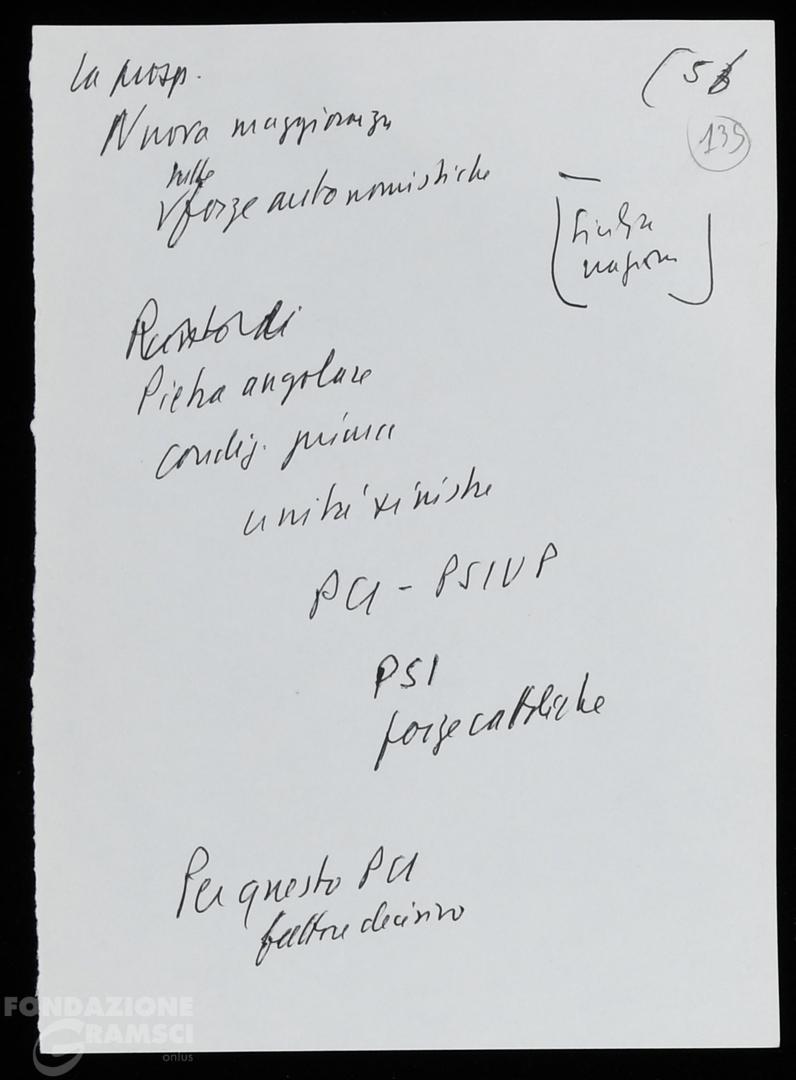 La prosp.
(5
139
Nuova maggioranza
tutte
forze autonomistiche
Sicilia
Pietra angolare
condiz. prima
unità sinistre
PCI - PSIUP
PSI
forze cattoliche
Per questo PCI
fattore decisivo
FONDAZIONE
GRAMSCI
onlus